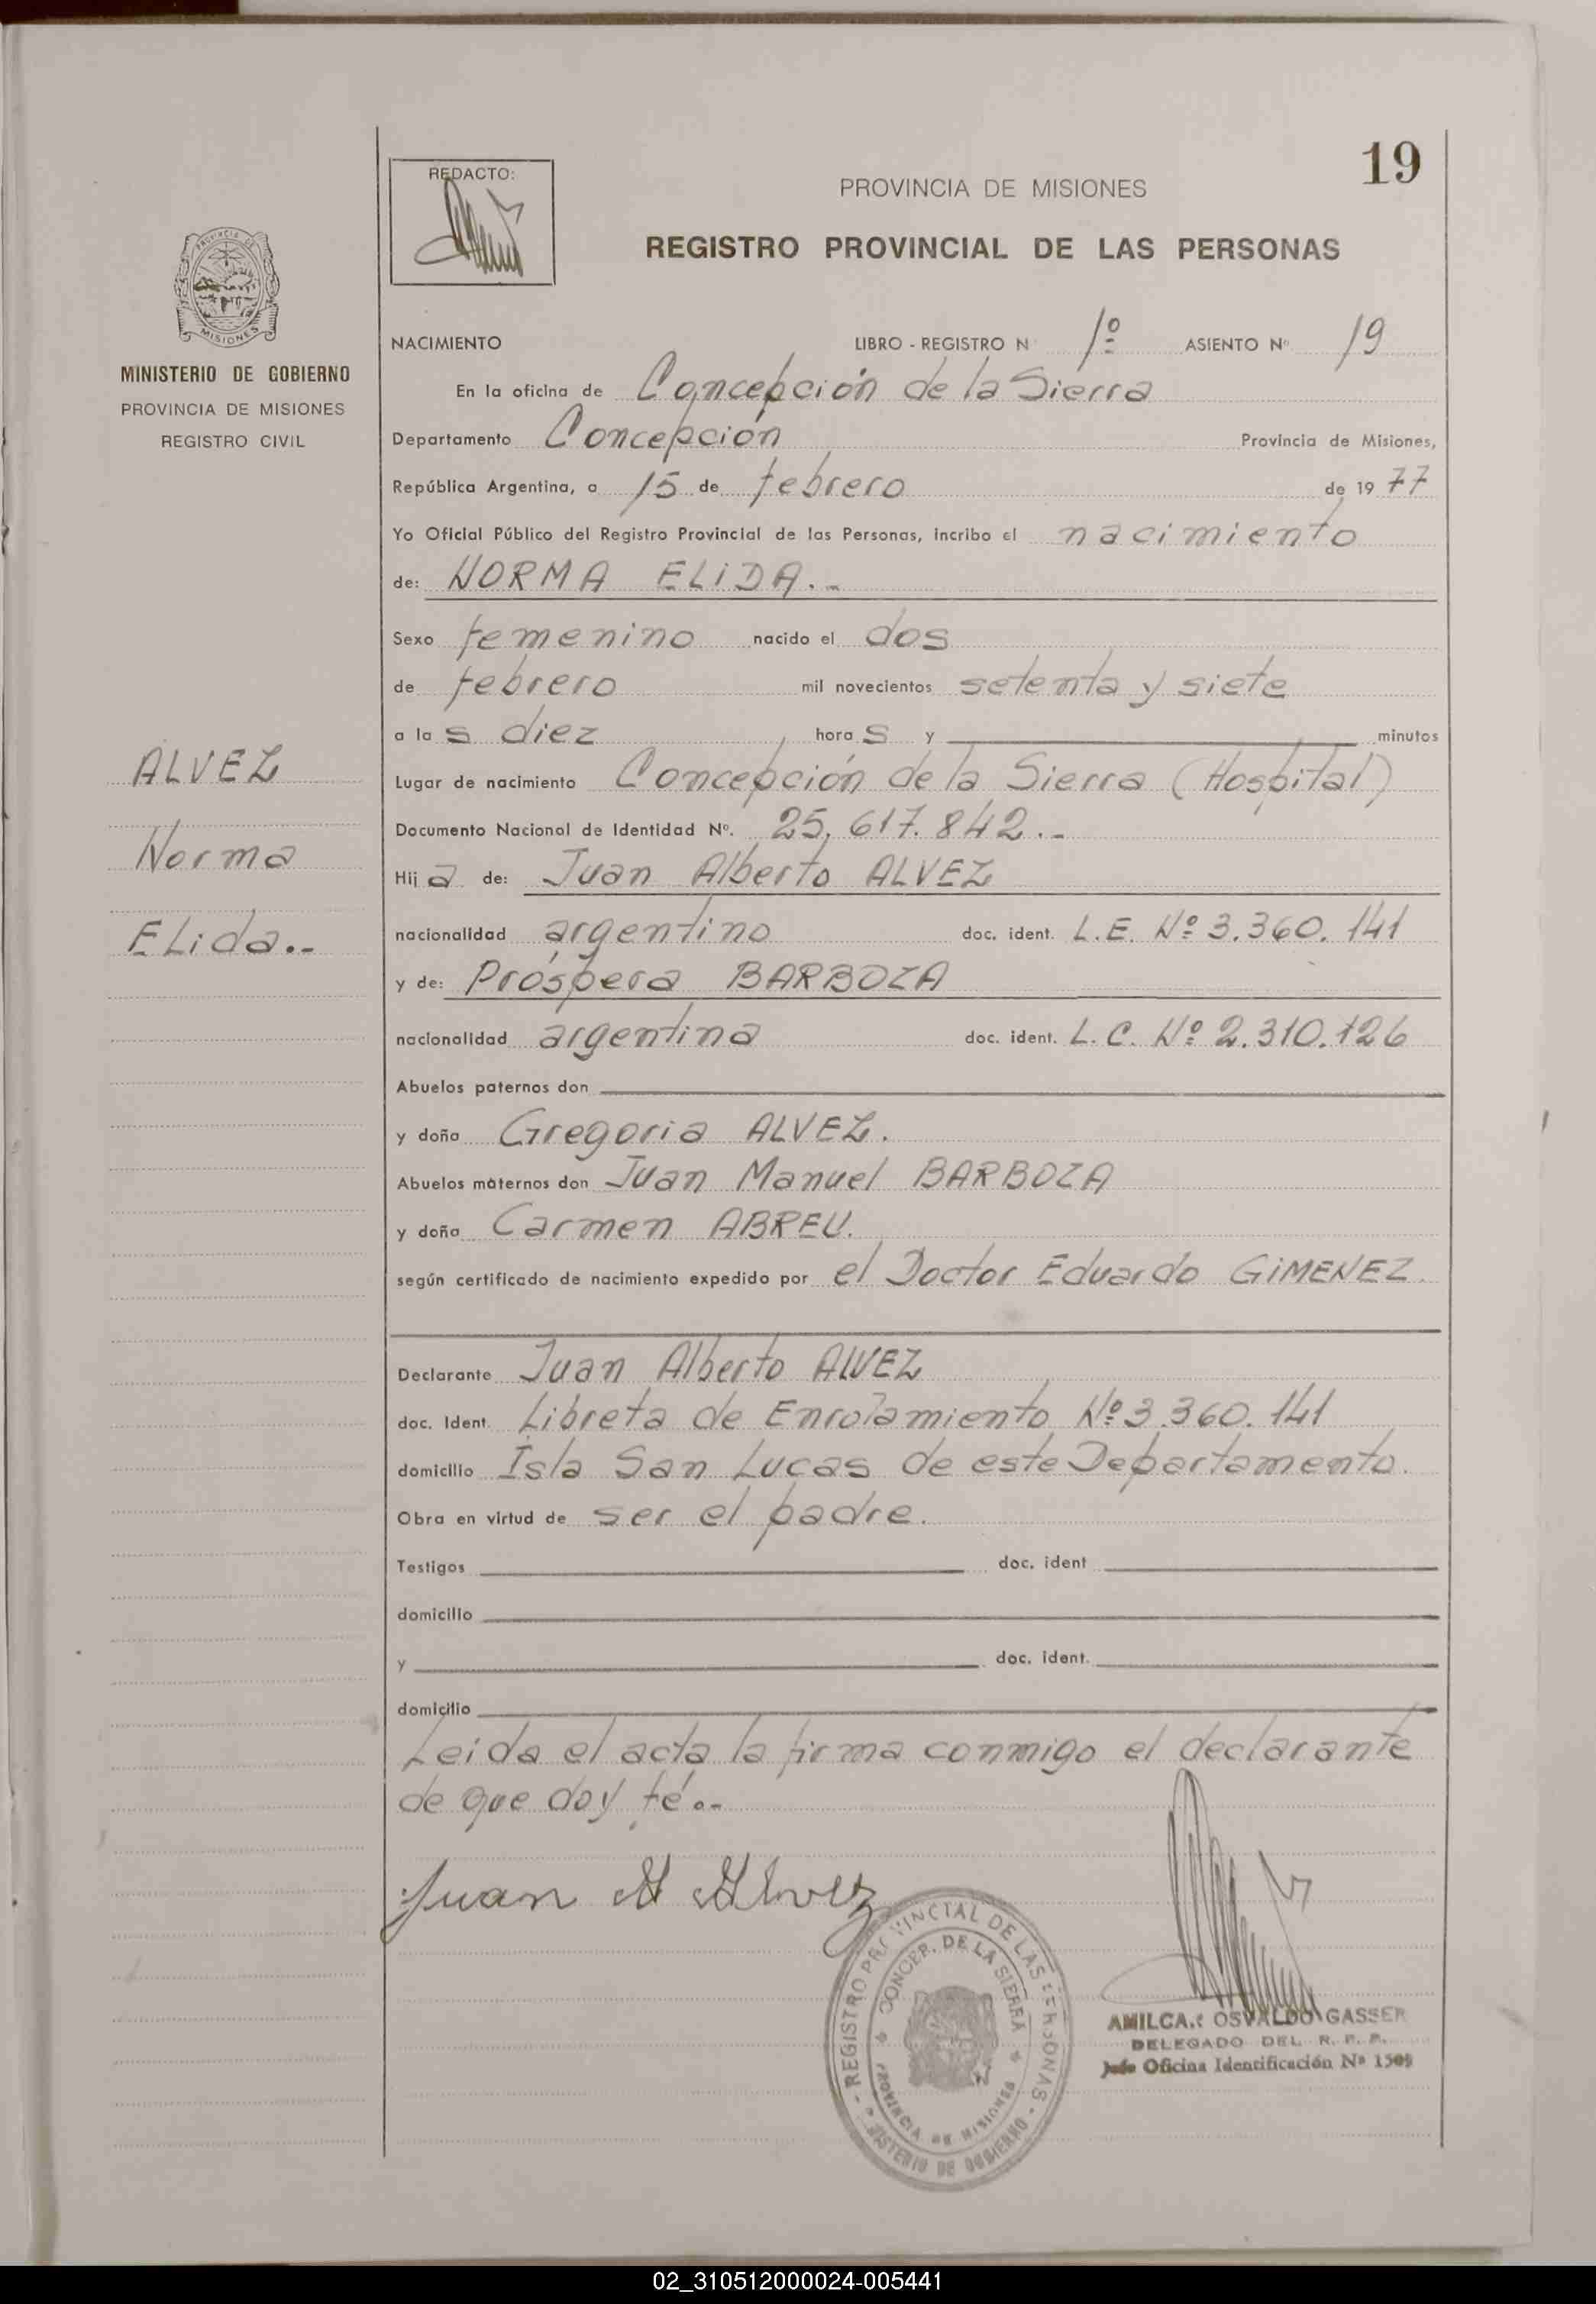 19
REDACTO:
PROVINCIA DE MISIONES
REGISTRO PROVINCIAL DE LAS PERSONAS
PROVINCIA DE
MISIONES
MINISTERIO DE GOBIERNO
PROVINCIA DE MISIONES
REGISTRO CIVIL
NACIMIENTO LIBRO - REGISTRO Nº 1º ASIENTO Nº 19
En la oficina de Concepción de la Sierra
Departamento Concepción Provincia de Misiones,
República Argentina, a 15 de febrero de 1977
Yo Oficial Público del Registro Provincial de las Personas, incribo el nacimiento
de: NORMA ELIDA.-
Sexo femenino nacido el dos
de febrero mil novecientos setenta y siete
a las diez horas y minutos
ALVEZ
Norma
Elida.-
Lugar de nacimiento Concepción de la Sierra (Hospital)
Documento Nacional de Identidad Nº. 25.617.842.-
Hija de: Juan Alberto ALVEZ
nacionalidad argentino doc. ident. L.E. Nº 3.360.141
y de: Próspera BARBOZA
nacionalidad argentina doc. ident. L.C. Nº 2.310.126
Abuelos paternos don
y doña Gregoria ALVEZ.
Abuelos maternos don Juan Manuel BARBOZA
y doña Carmen ABREU.
según certificado de nacimiento expedido por el Doctor Eduardo GIMENEZ.
Declarante Juan Alberto ALVEZ
doc. Ident. Libreta de Enrolamiento Nº 3.360.141
domicilio Isla San Lucas de este Departamento.
Obra en virtud de ser el padre.
Testigos doc. ident
domicilio
y doc. ident.
domicilio
Leida el acta la firma conmigo el declarante
de que doy fé.-
Juan A Alvez
REGISTRO PROVINCIAL DE LAS PERSONAS
CONCEP. DE LA SIERRA
PROVINCIA DE MISIONES
MINISTERIO DE GOBIERNO
AMILCAR OSVALDO GASSER
DELEGADO DEL R. P. P.
Jefe Oficina Identificación Nº 1509
02_310512000024-005441